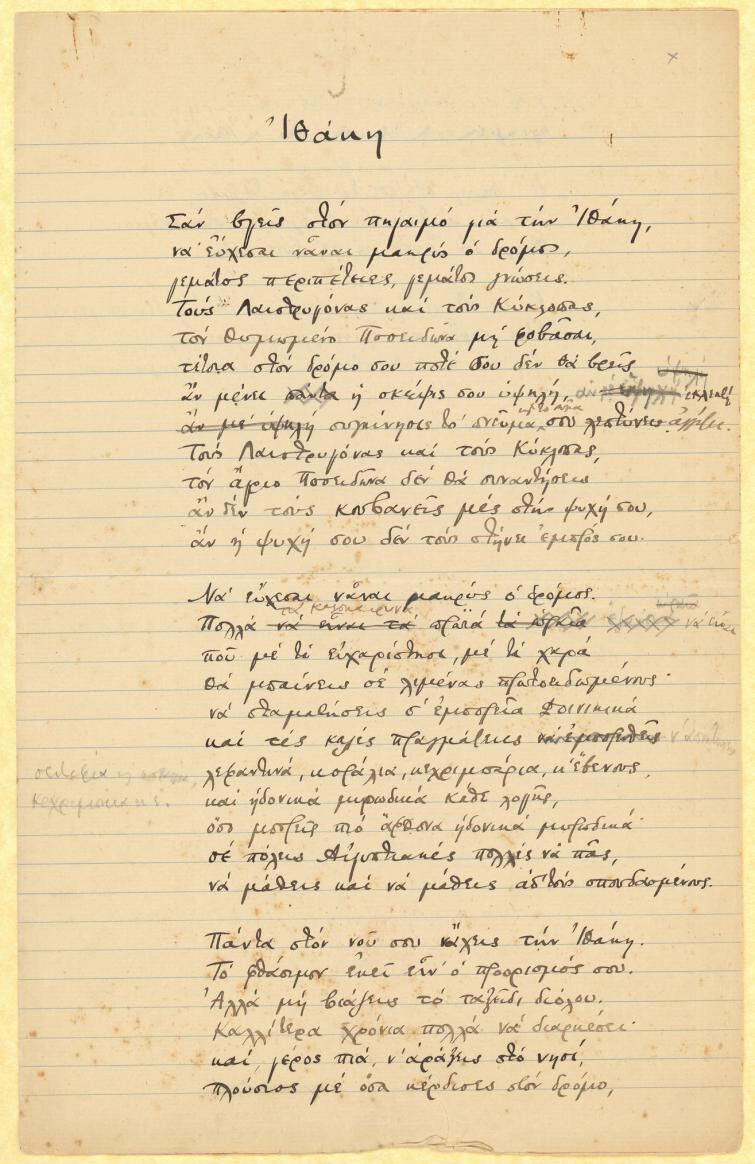 Ἰθάκη
Σάν βγεῖς στόν πηγαιμό γιά τήν Ἰθάκη,
νά εὔχεσαι νἆναι μακρύς ὁ δρόμος,
γεμάτος περιπέτειες, γεμάτος γνώσεις.
Τούς Λαιστρυγόνας καί τούς Κύκλωπας,
τόν θυμωμένο Ποσειδῶνα μή φοβᾶσαι,
τέτοια στόν δρόμο σου ποτέ σου δέν θά βρεῖς
ὑψηλή
ἄν μένει πάντα ἡ σκέψις σου ὑψηλή, ἐκλεκτή
ἄν μέ ὑψηλή συγκίνησις τό πνεῦμα σου λεπτύνεις ἀγγίζει.
καί τό σῶμα
Τούς Λαιστρυγόνας καί τούς Κύκλωπας,
τόν ἄγριο Ποσειδῶνα δέν θά συναντήσεις
ἄν δέν τούς κουβανεῖς μές στήν ψυχή σου,
ἄν ἡ ψυχή σου δέν τούς στήνει ἐμπρός σου.
Νά εὔχεσαι νἆναι μακρύς ὁ δρόμος.
τά καλοκαιρινά
Πολλά νά εἶναι τά πρωϊά τά πρωϊά νά εἶναι
πού μέ τί εὐχαρίστησι, μέ τί χαρά
θά μπαίνεις σέ λιμένας πρωτοειδωμένους·
νά σταματήσεις σ' ἐμπορεῖα Φοινικικά
καί τές καλές πραγμάτειες νά ἐμπορευθεῖς ν' ἀποκτήσεις
σεντέφια καί κοράλλια,
λεφαντινά, κοράλια, κεχριμπάρια, κ' ἔβενους,
κεχριμπάρια κ' ἔ.
καί ἡδονικά μυρωδικά κάθε λογῆς,
ὅσο μπορεῖς πιό ἄφθονα ἡδονικά μυρωδικά·
σέ πόλεις Αἰγυπτιακές πολλές νά πᾶς,
νά μάθεις καί νά μάθεις ἀπ' τούς σπουδασμένους.
Πάντα στόν νοῦ σου νἄχεις τήν Ἰθάκη.
Τό φθάσιμον ἐκεῖ εἶν' ὁ προορισμός σου.
Ἀλλά μή βιάζεις τό ταξεῖδι διόλου.
Καλλίτερα χρόνια πολλά νά διαρκέσει·
καί, γέρος πιά, ν' ἀράξεις στό νησί,
πλούσιος μέ ὅσα κέρδισες στόν δρόμο,